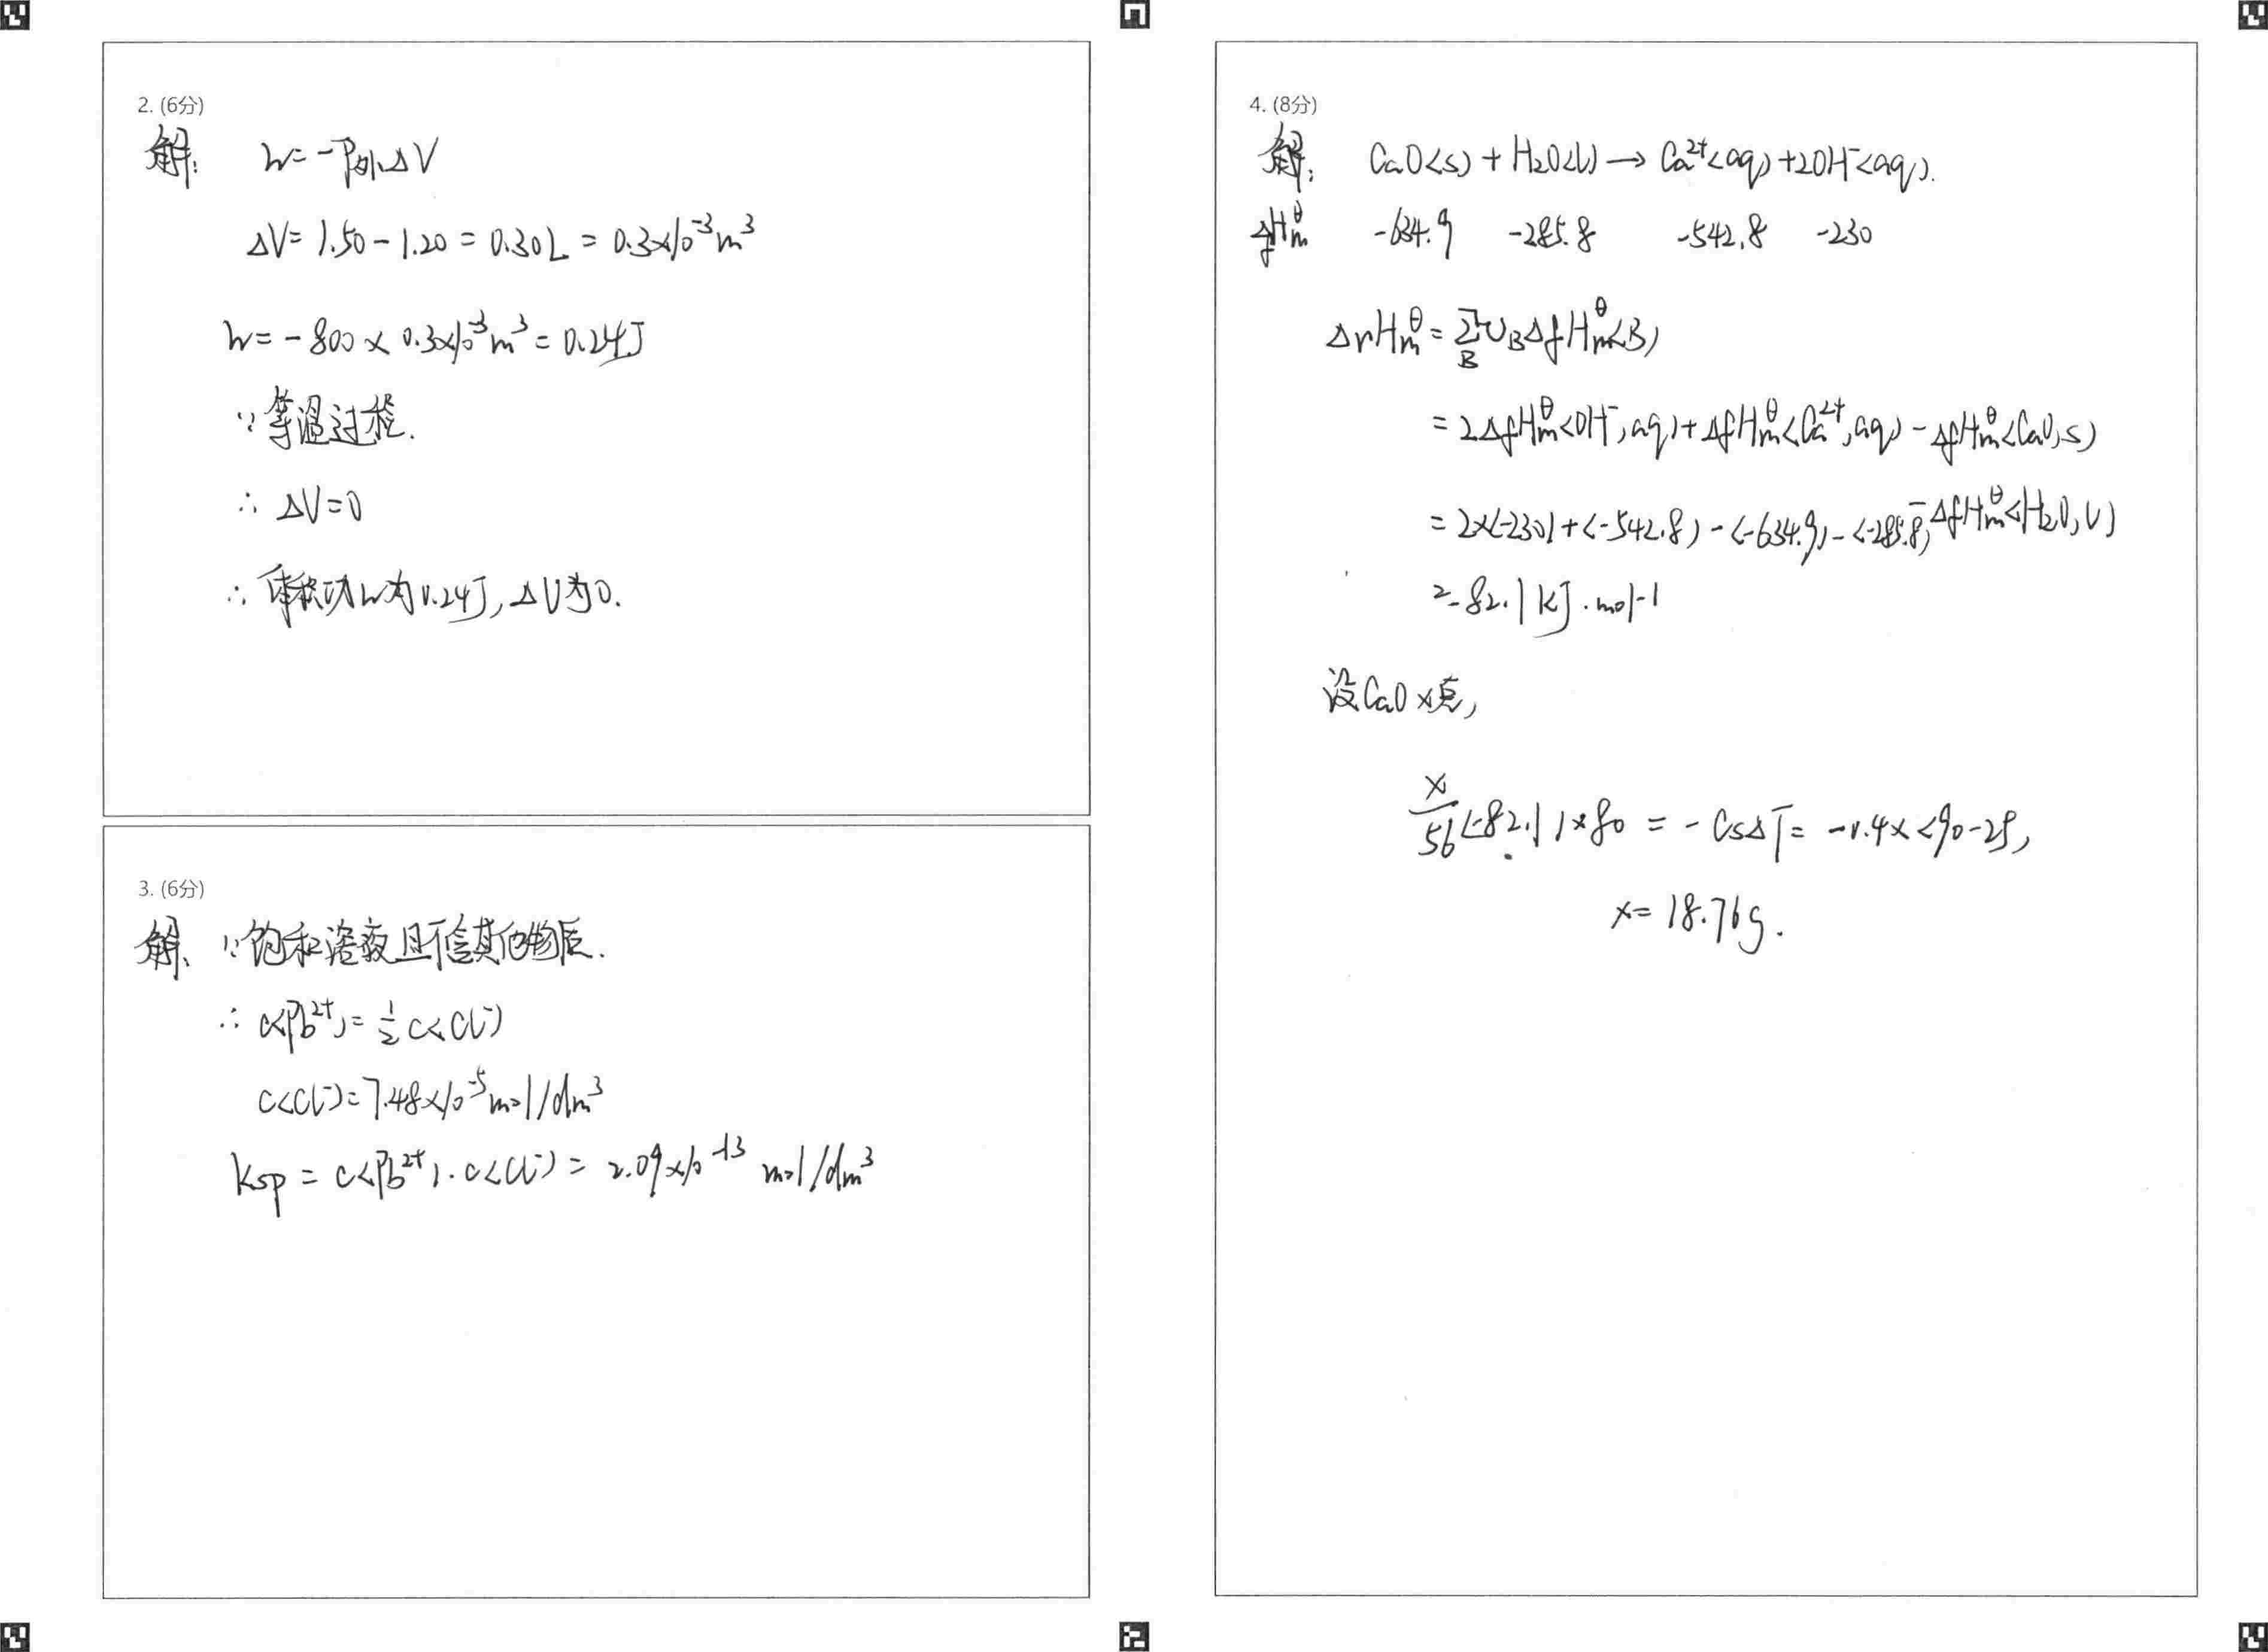 2. (6分)
解: W=-P外ΔV
ΔV=1.50-1.20=0.30L=0.3×10⁻³m³
W=-800×0.3×10⁻³m³=0.24J
∵等温过程.
∴ΔU=0
∴体积功W为0.24J,ΔU为0.
3. (6分)
解、∵饱和溶液且不含其他物质.
∴c<Pb²⁺)=½c<Cl⁻)
c<Cl⁻)=7.48×10⁻⁵mol/dm³
Ksp=c<Pb²⁺)·c<Cl⁻)=2.09×10⁻¹³ mol/dm³
4. (8分)
解: CaO<s)+H₂O<l)→Ca²⁺<aq)+2OH⁻<aq).
ΔfHmθ -634.9 -285.8 -542.8 -230
ΔrHmθ=ΣBυBΔfHmθ<B)
=2ΔfHmθ<OH⁻,aq)+ΔfHmθ<Ca²⁺,aq)-ΔfHmθ<CaO,s)
-ΔfHmθ<H₂O,l)
=2×<-230)+<-542.8)-<-634.9)-<-285.8)
=-82.1kJ·mol-1
设CaO x克,
x/56<-82.1)×80=-CsΔT=-0.4×<90-25)
x=18.76g.